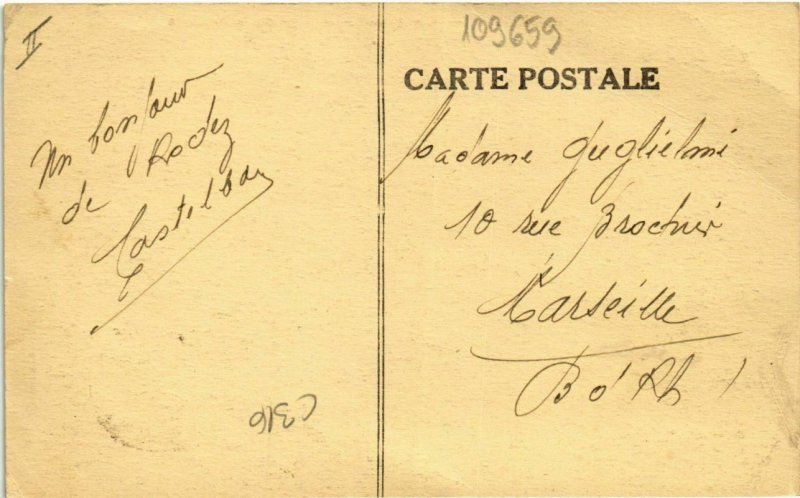 II
Un bonjour
de Rodez
Castelbou
109659
CARTE POSTALE
Madame Guglielmi
10 rue Brochier
Marseille
B d' Rh
C316